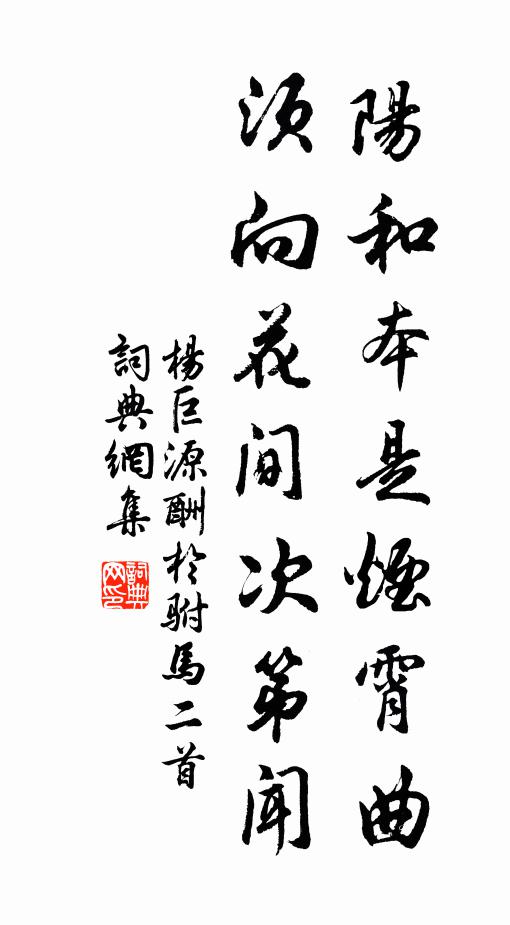 陽和本是煙霄曲
須向花間次第聞
楊巨源酬於駙馬二首
詞典網集
詞典网印